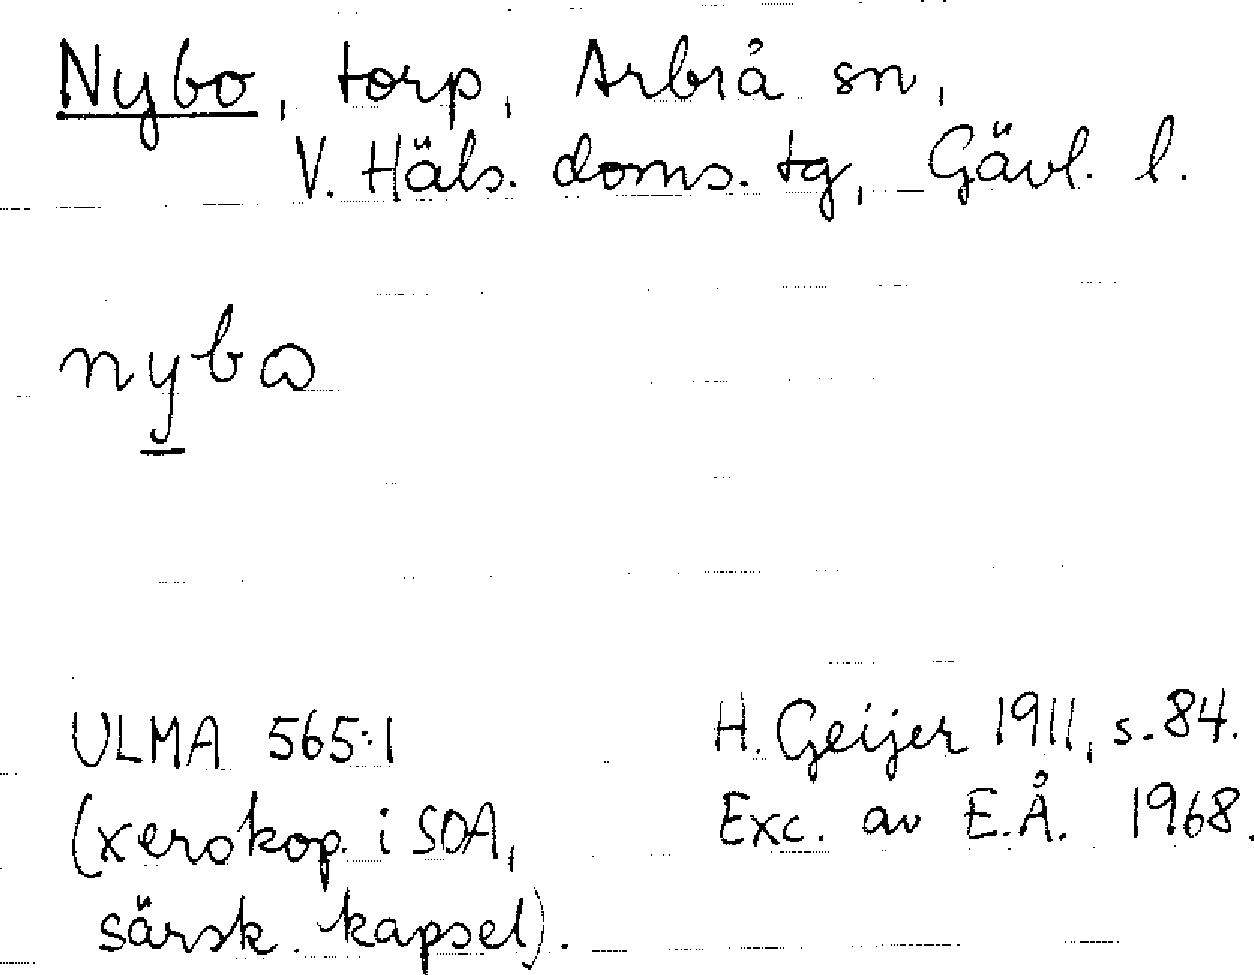 Nybo, torp, Arbrå sn,
V. Häls. doms. tg, Gävl. l.
nybɷ
ULMA 565:1
(xerokop. i SOA,
särsk. kapsel).
H. Geijer 1911, s. 84.
Exc. av E.Å. 1968.